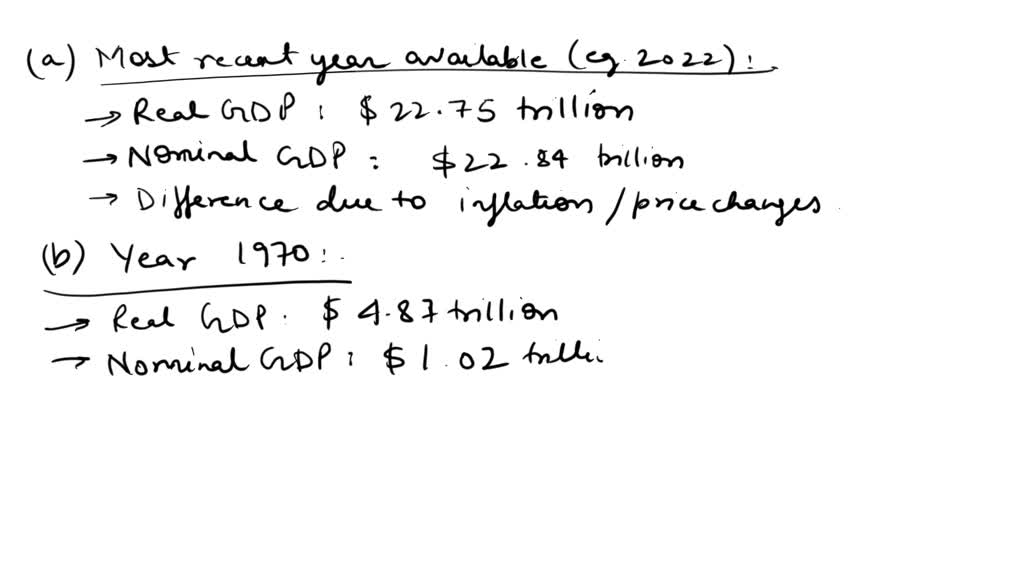 (a) Most recent year available (eg. 2022):
→ Real GDP : $ 22.75 trillion
→ Nominal GDP : $22.84 trillion
→ Difference due to inflation / price changes
(b) Year 1970:
→ Real GDP. $ 4.87 trillion
→ Nominal GDP : $ 1.02 trilli